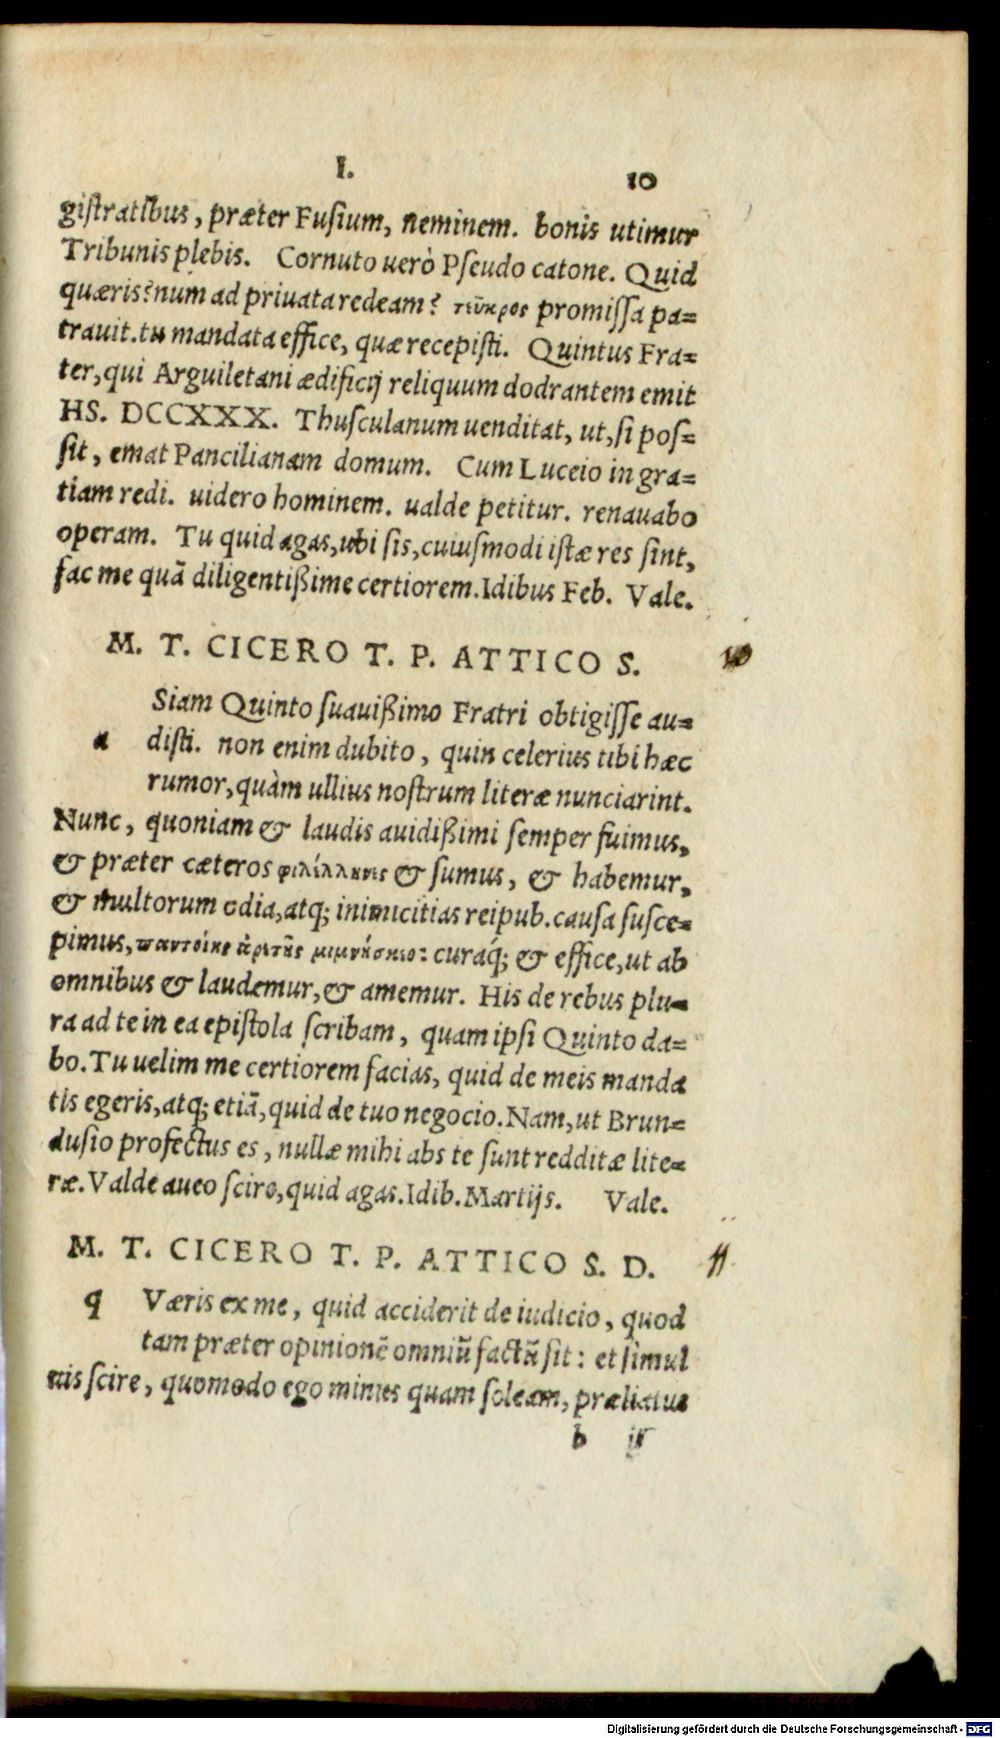 I. 10
giſtratibus, præter Fuſium, neminem. bonis utimur
Tribunis plebis. Cornuto uerò Pſeudo catone. Quid
quæris? num ad priuata redeam? τεῦκρος promiſſa pa=
trauit. tu mandata effice, quæ recepiſti. Quintus Fra=
ter, qui Arguiletani ædificij reliquum dodrantem emit
HS. DCCXXX. Thuſculanum uenditat, ut, ſi poſ=
ſit, emat Pancilianam domum. Cum Luceio in gra=
tiam redi. uidero hominem. ualde petitur. renauabo
operam. Tu quid agas, ubi ſis, cuiuſmodi iſtæ res ſint,
fac me quã diligentißime certiorem. Idibus Feb. Vale.
M. T. CICERO T. P. ATTICO S. 10
Siam Quinto ſuauißimo Fratri obtigiſſe au=
a diſti. non enim dubito, quin celerius tibi hæc
rumor, quàm ullius noſtrum literæ nunciarint.
Nunc, quoniam & laudis auidißimi ſemper fuimus,
& præter cæteros φιλέλληνες & ſumus, & habemur,
& multorum odia, atq; inimicitias reipub. cauſa ſuſce=
pimus, παντοίης ἀρετῆς μιμνήσκεο: curaq́; & effice, ut ab
omnibus & laudemur, & amemur. His de rebus plu=
ra ad te in ea epiſtola ſcribam, quam ipſi Quinto da=
bo. Tu uelim me certiorem facias, quid de meis manda
tis egeris, atq; etiã, quid de tuo negocio. Nam, ut Brun=
duſio profectus es, nullæ mihi abs te ſunt redditæ lite=
ræ. Valde aueo ſcire, quid agas. Idib. Martijs. Vale.
M. T. CICERO T. P. ATTICO S. D. 11
q Væris ex me, quid acciderit de iudicio, quod
tam præter opinionẽ omniũ factũ ſit: et ſimul
uis ſcire, quomodo ego minus quam ſoleam, præliatus
b ij
Digitalisierung gefördert durch die Deutsche Forschungsgemeinschaft - DFG